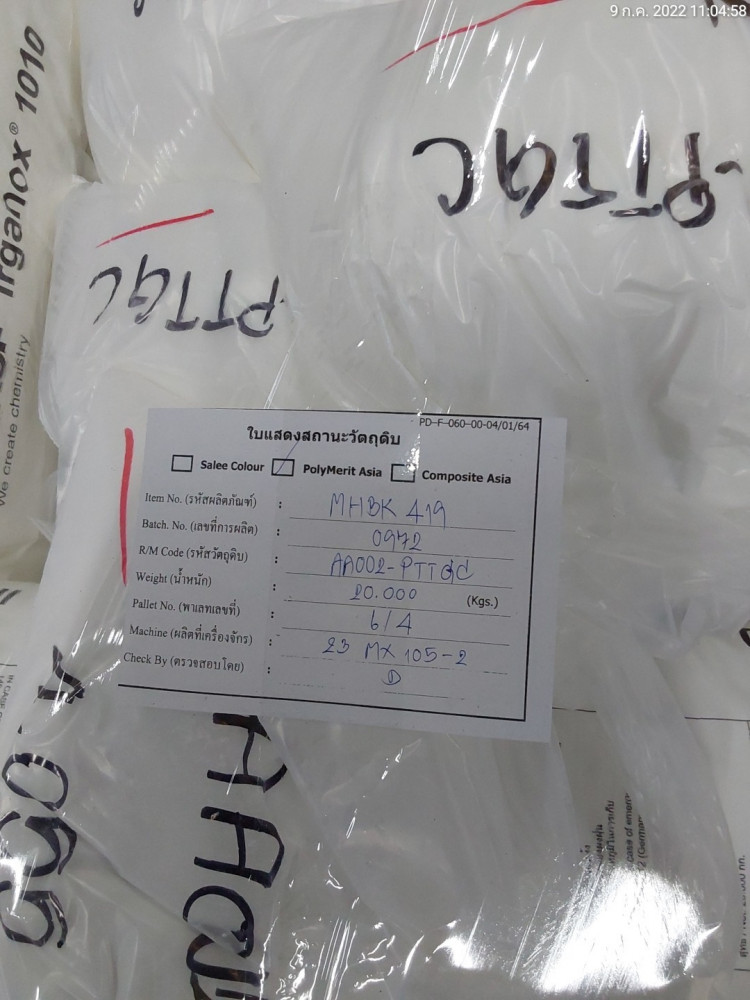 9 ก.ค. 2022 11:04:58
Irganox® 1010
We create chemistry
PTTGC
PTTGC
PD-F-060-00-04/01/64
ใบแสดงสถานะวัตถุดิบ
Salee Colour PolyMerit Asia Composite Asia
Item No. (รหัสผลิตภัณฑ์) : MHBK 419
Batch. No. (เลขที่การผลิต) : 0972
R/M Code (รหัสวัตถุดิบ) : AA002-PTTGC
Weight (น้ำหนัก) : 20.000 (Kgs.)
Pallet No. (พาเลทเลขที่) : 6/4
Machine (ผลิตที่เครื่องจักร) : 23 MX 105-2
Check By (ตรวจสอบโดย) : D